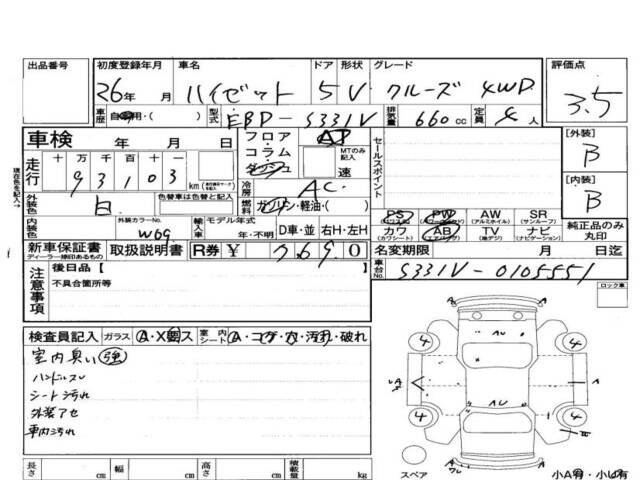 出品番号 初度登録年月 車名 ドア 形状 グレード 評価点
26年 月 ハイゼット 5 V クルーズ 4WD 3.5
車歴 自家用・( ) 型式 EBD-S331V 排気量 660cc 定員 4人
車検 年 月 日 フロア AT
コラム MTのみ記入
ダッシュ 速
セールスポイント
[外装] B
[内装] B
走行 十 万 千 百 十
93103 km
現在色を記入→
冷房 AC
外装色 白 色替車は色替と記入
燃料 ガソリン・軽油・( )
内装色 外装カラーNo. W09
輸入車 モデル年式 年・不明 D車・並 右H・左H
PS PW AW SR
(パワステ) (パワーウインドウ) (アルミホイル) (サンルーフ)
カワ AB TV ナビ
(カワシート) (エアバッグ) (地デジ) (ナビゲーション)
純正品のみ丸印
新車保証書 取扱説明書 R券 ¥ 7,690
ディーラー捺印あるもの
名変期限 月 日迄
注意事項 後日品[
不具合箇所等
車台No. S331V-0105551
ロック車
検査員記入 ガラス A・X要ス 室内シート A・コゲ・穴・汚れ・破れ
室内臭い 強
ハンドルスレ
シート汚れ
外装アセ
車内汚れ
4 4
4 4
長さ cm 幅 cm 高さ cm 積載量 kg
スペア
小A有・小U有